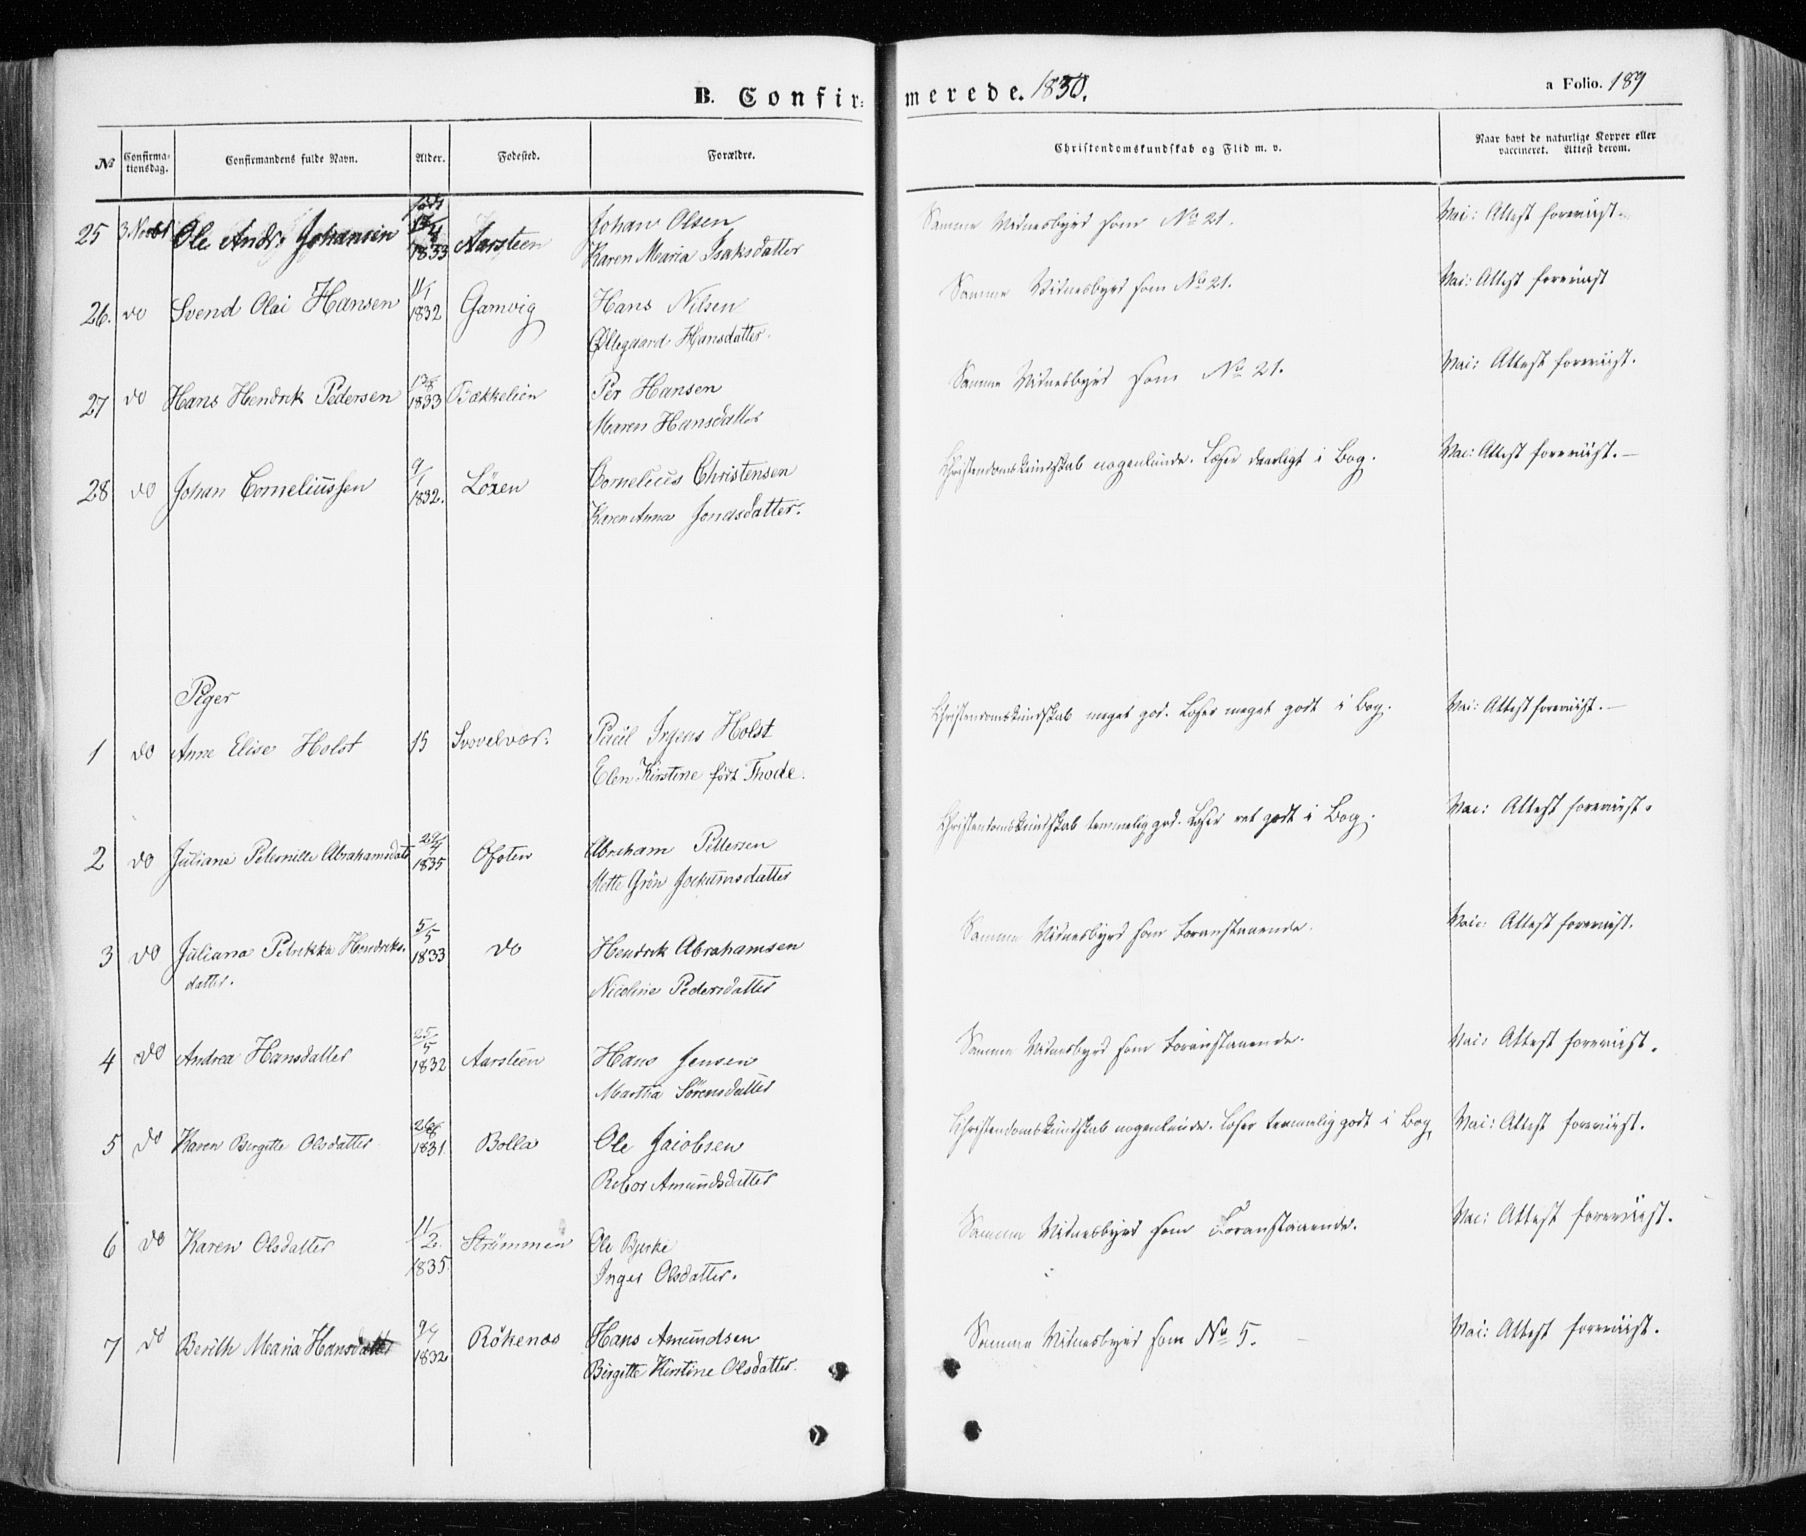 B. Confir: merede. 1850. a Folio. 189
№ Confirma-tionsdag. Confirmandens fulde Navn. Alder. Fødested. Forældre. Christendomskundskab og Flid m. v. Naar havt de naturlige Kopper eller vaccineret. Attest derom.
født
25 Ole Andr: Johansen 1833 Aarsteen Johan Olsen Samme Vidnesbyrd som No 21. Vac: Attest foreviist.
Karen Maria Isaksdatter
26. do Svend Olai Hansen 11/1 1832 Gamvig Hans Nilsen Samme Vidnesbyrd som No 21. Vac: Attest foreviist
Øllegaard Hansdatter.
27 do Hans Hendrik Pedersen 1833 Bækkelien Per Hansen Samme Vidnesbyrd som No 21. Vac: Attest foreviist.
Maren Hansdatter
28 do Johan Corneliussen 9/1 1832. Löxen Cornelius Christensen Christendomskundskab nogenlunde. Læser daarligt i Bog. Vac: Attest foreviist.—
Karen Anna Jonasdatter.
Piger
1 do Anne Elise Holst 15 Svovelvær. Povel Irgens Holst Christendomskundskab meget god. Læser meget godt i Bog. Vac: Attest foreviist.—
Elen Kirstine født Thode.
2 do Juliane Peternille Abrahamsdatt 1835 Ofoten Abraham Pettersen Christendomskundskab temmelig god. Læser ret godt i Bog. Vac: Attest foreviist.
Mette Grön Jochumsdatter
3 do Juliana Petrikka Hendriks- 5/5 1833 do Hendrik Abrahamsen Samme Vidnesbyrd som Foranstaaende. Vac: Attest foreviist.
datter. Nicoline Pedersdatter
4 do Andrea Hansdatter 25/5 1832 Aarsteen Hans Jensen Samme Vidnesbyrd som Foranstaaende. Vac: Attest foreviist.
Martha Sörensdatter
5 do Karen Birgitte Olsdatter 1831 Bolla Ole Jacobsen Christendomskundskab nogenlunde. Læser temmelig godt i Bog. Vac: Attest foreviist.
Rebor Amundsdatter
6 do Karen Olsdatter 11/2 1835. Strömmen Ole Bjerke Samme Vidnesbyrd som Foranstaaende. Vac: Attest foreviist.
Inger Olsdatter.
7 do Berith Maria Hansdatter 9/4 1832 Rökenæs Hans Amundsen Samme Vidnesbyrd som No 5. Vac: Attest foreviist.
Birgitte Kirstine Olsdatter.